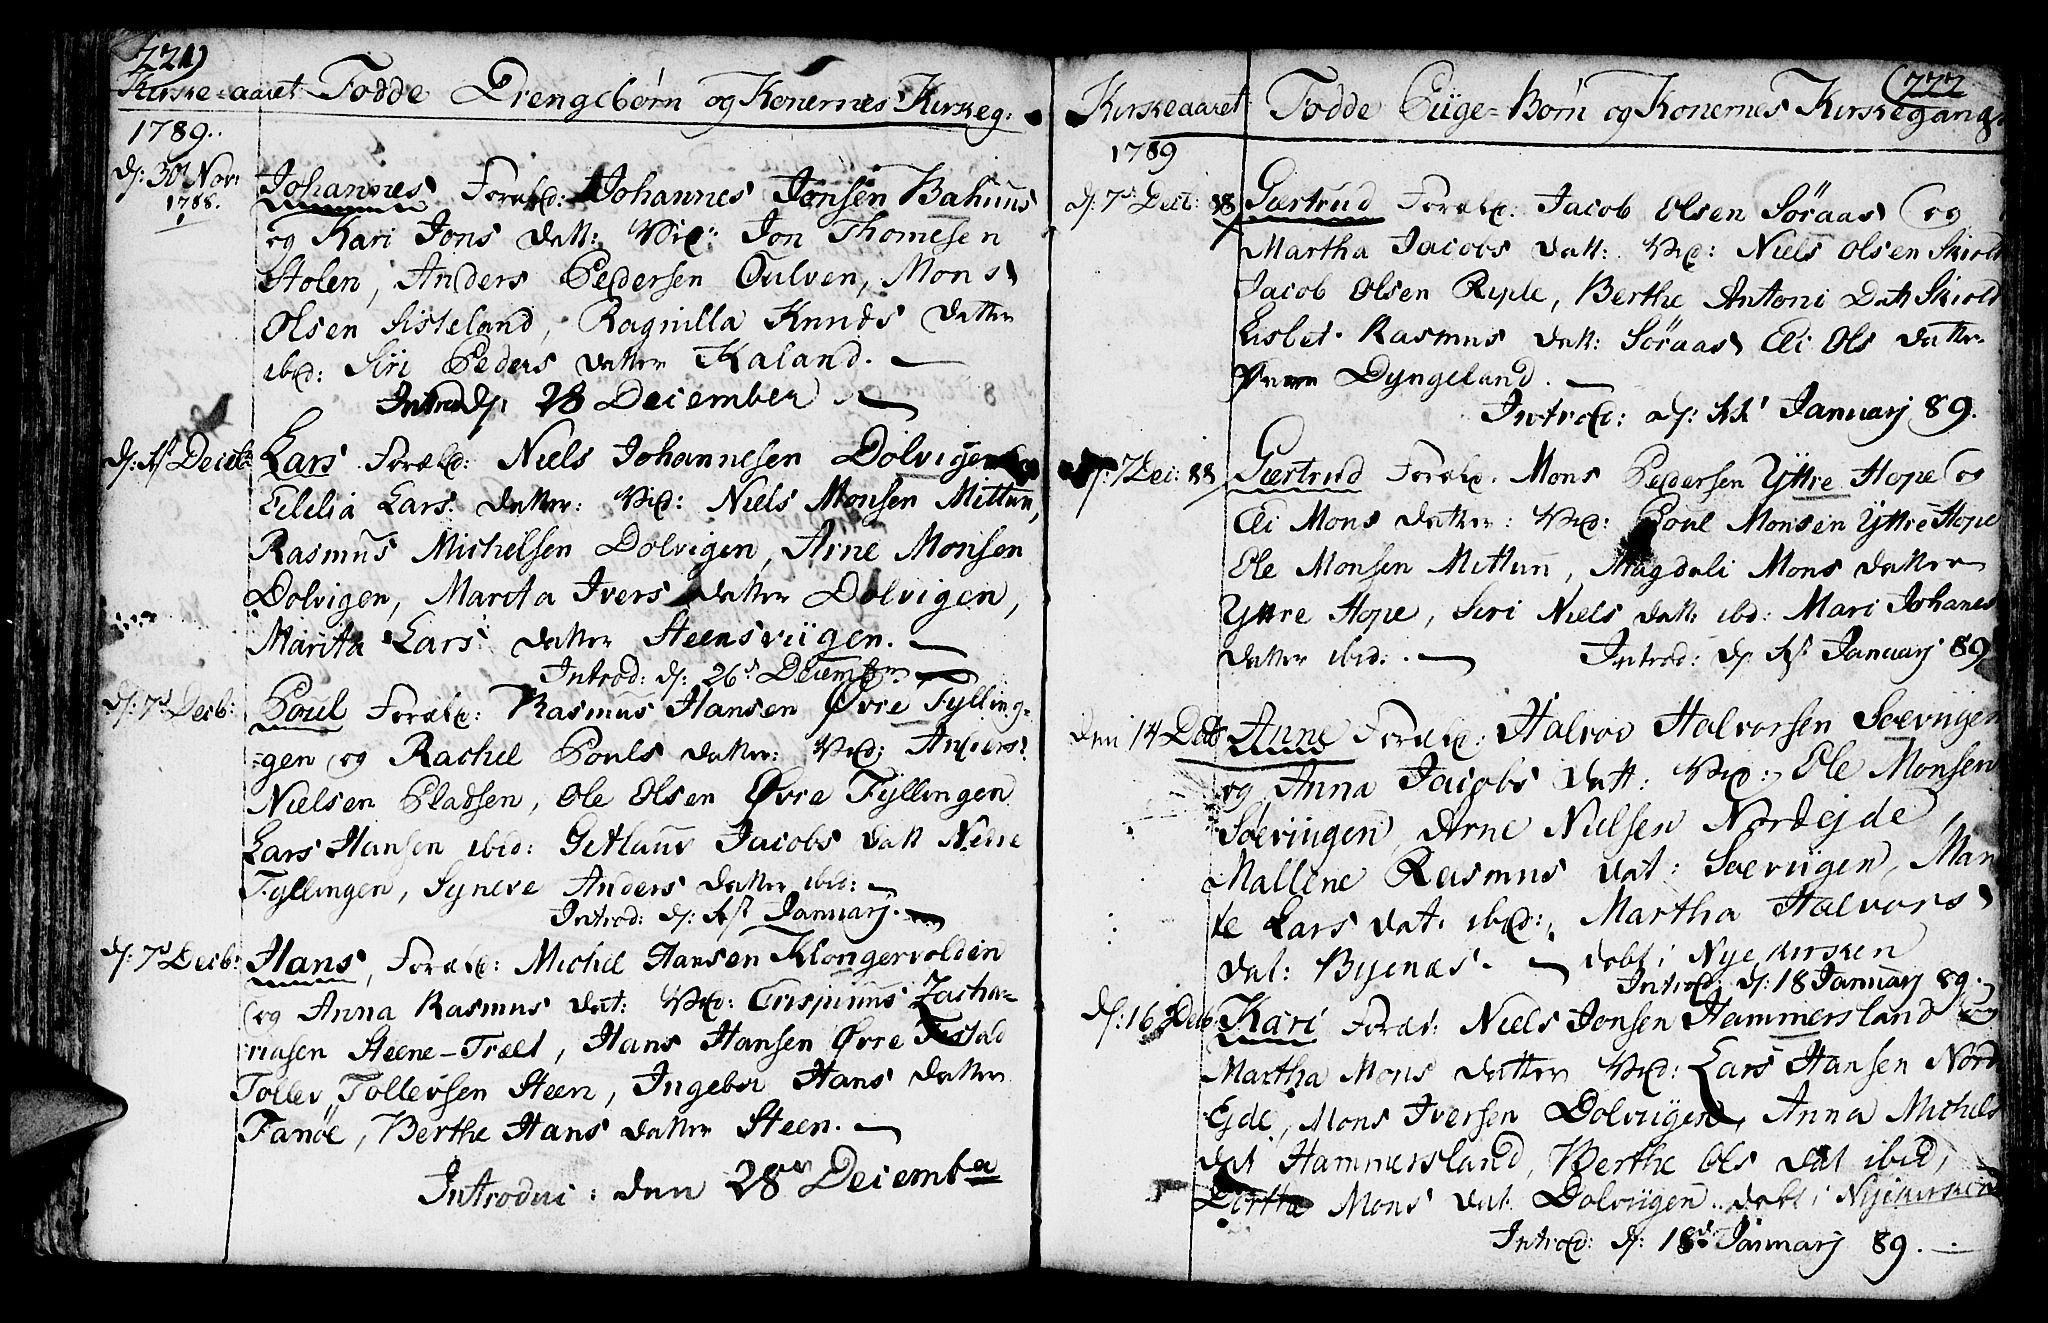 221)
Kirke-aaret Fødde Drengebørn og Konernes Kirkeg:
1789.
d: 30t Nov:
1788.
Johannes Foræld: Johannes Jensen Bahuus
og Kari Jons datt: Vid: Jon Thomesen
Stolen, Anders Pedersen Tulven, Mons
Olsen Sisteland, Ragnilla Knuds datter
ibid: Siri Peders datter Kaland.
Introd d: 28 December
d: 1st Decbr
Lars Foræld: Niels Johannesen Dolvigen og
Cicilia Lars datter: Vid: Niels Monsen Mittun,
Rasmus Michelsen Dolvigen, Arne Monsen
Dolvigen, Marita Ivers datter Dolvigen,
Marita Lars datter Steensviigen.
Introd: d: 26d December
d: 7d Decb:
Poul Foræld: Rasmus Hansen Øvre Tylling-
-gen og Rachel Pouls datter: Vid: Anders
Nielsen Pladsen, Ole Olsen Øvre Tyllingen
Lars Hansen ibid: Jacobs datt Nedre
Tyllingen, Synneve Anders datter ibid:
Introd: d: 1st Januarj.
d: 7d Decb:
Hans, Foræld: Michel Hansen Klongervolden
og Anna Rasmus dat: Vid: Crispinus Zacha-
riasen Steene-Træet, Hans Hansen Øvre
Tollev Tollevsen Steen, Ingebor Hans datter
Fanöe, Berthe Hans datter Steen.
Introduc: den 28de Decemb
(222
Kirkeaaret Fødde Piige-Børn og Konernes Kirkegang
1789
d: 7d Decb: 88
Giertrud Foræld: Jacob Olsen Söraas og
Martha Jacobs datt: Vid: Niels Olsen Skiold
Jacob Olsen Ryple, Berthe Antoni Datt Skiold
Lisbet Rasmus datt: Söraas Eli Ols datter
Dyngeland.
Introd: d: Januarj 89.
d: 7 Dec: 88
Giertrud Foræld. Mons Pedersen Yttre Hope og
Eli Mons datter: Vid: Poul Monsen Yttre Hope
Ole Monsen Mittun, Magdeli Mons datter
Yttre Hope, Siri Niels datt: ibd: Mari Johanes
datter ibid:
Introd: d 1st Januarj 89
den 14 Decb
Anne Foræld: Halvor Halvorsen Söeviigen
og Anna Jacobs datt: Vid: Ole Monsen
Söeviigen, Arne Nielsen Nordejde,
Mallene Rasmus dat: Söeviigen, Man
te Lars dat: ibid: Martha Halvors
dat: Byenæs. döbt i Nyekirken
Introd: d: 18 Januarj 89.
d: 16 Decb:
Kari Foræl: Niels Jonsen Hammersland og
Martha Mons datter Vid: Lars Hansen Nord
Ejde, Mons Iversen Dolviigen, Anna Michels
dat Hammersland, Berthe Ols dat ibid,
Dorthe Mons dat Dolviigen döbt i Nyekirken
Introd: d: 18d Januarj 89.